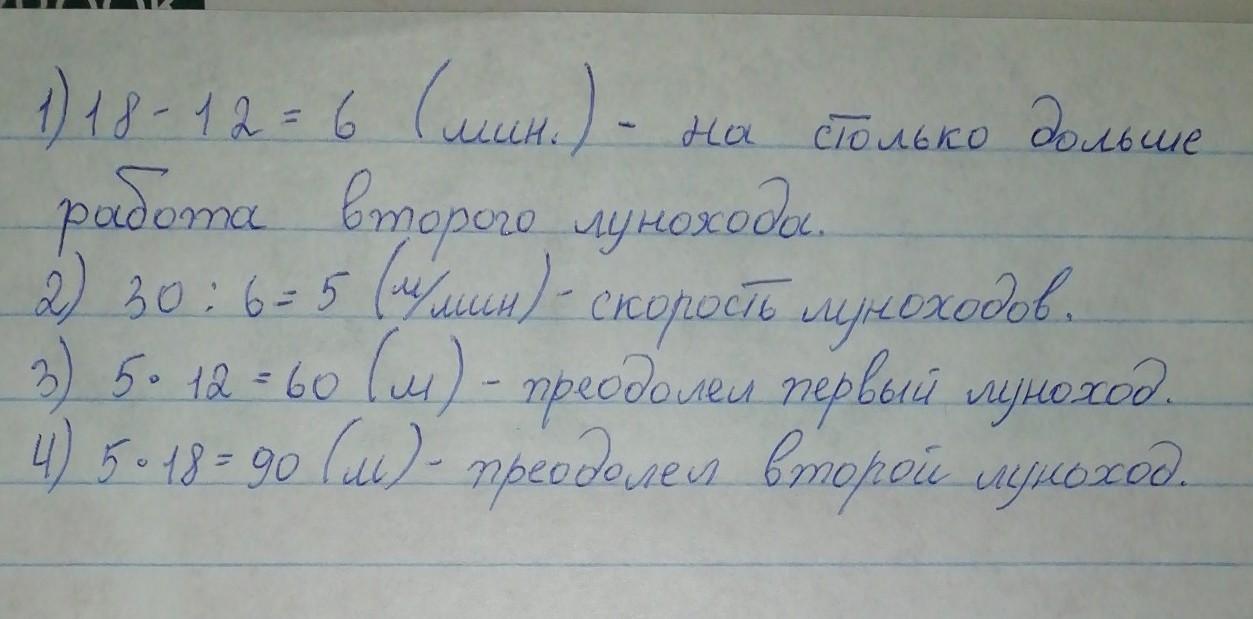 1) 18 - 12 = 6 (мин.) - на столько дольше
работа второго лунохода.
2) 30 : 6 = 5 (м/мин) - скорость луноходов.
3) 5 · 12 = 60 (м) - преодолел первый луноход.
4) 5 · 18 = 90 (м) - преодолел второй луноход.